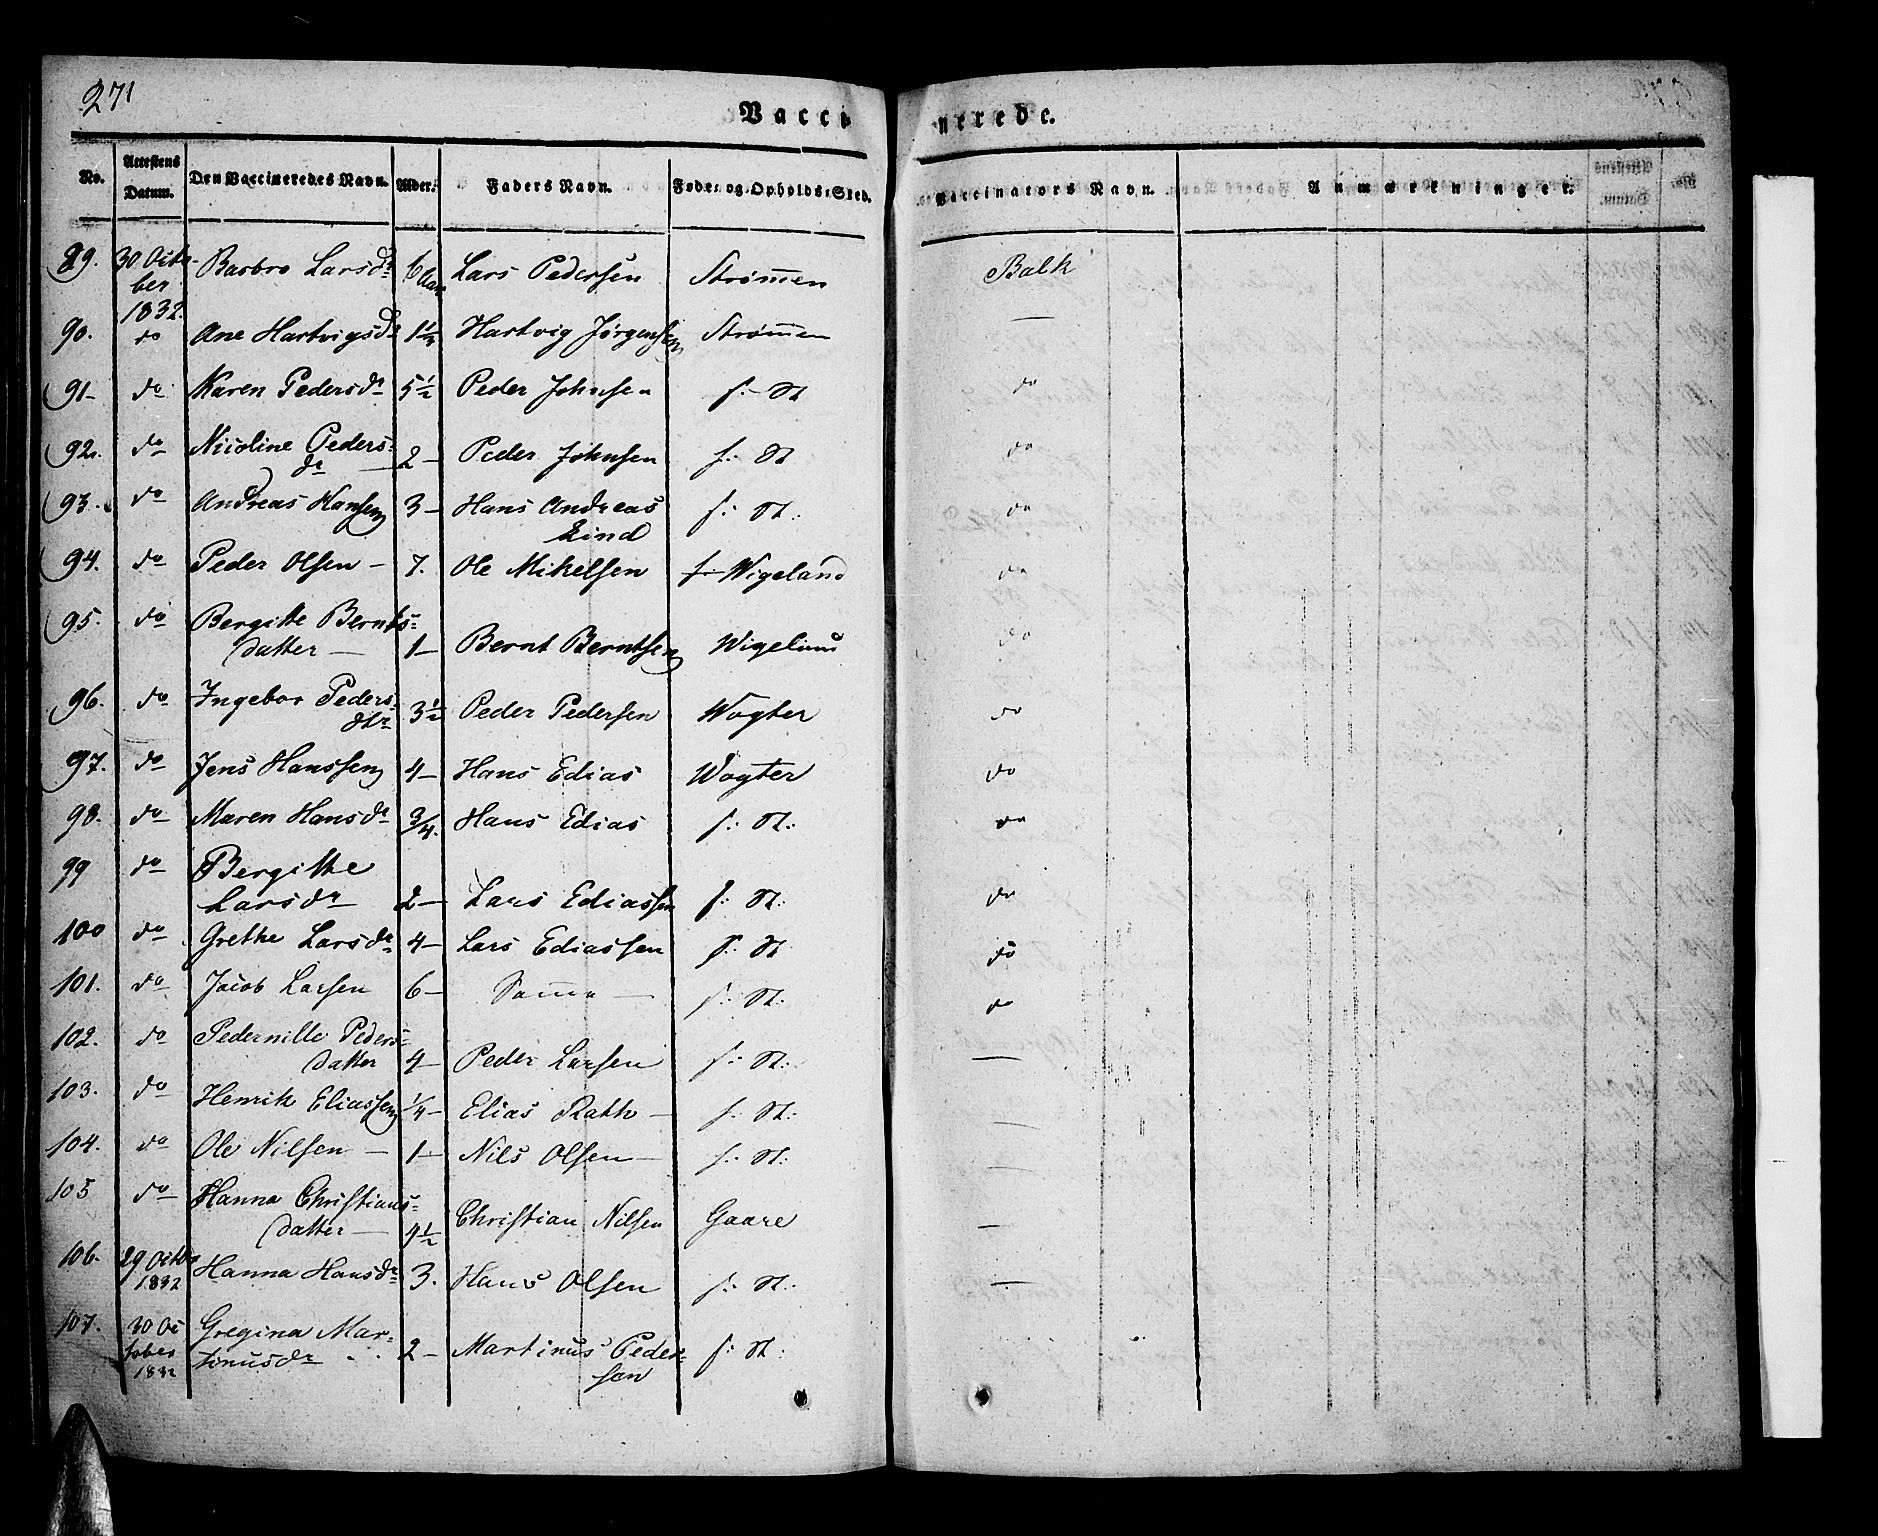 271
Vacci nerede.
No. Attestens Datum. Den Vaccineredes Navn. Alder. Faders Navn. Føde- og Opholds-Sted. Vaccinators Navn. Anmærkninger.
89. 30 Octo- Barbro Larsdr 6 Aar Lars Pedersen Strømen Balk
ber
1832.
90. do Ane Hartvigsdr 1 1/2 Hartvig Jørgensen Strømen —
91 - do Karen Pedersdr 5 1/2 Peder Johnsen f: St do
92. do Nicoline Peders- 2 - Peder Johnsen f: St do
dr —
93. do Andreas Hansen 3 - Hans Andreas f: St: do
Lind
94. do Peder Olsen - 7. Ole Mikelsen f: Wigeland do
95. do Bergitte Bernts=
datter — 1 - Bernt Berntsen Wigeland do
96. do Ingebor Peders- 3 1/2 Peder Pedersen Wogter do
dtr
97. do Jens Hanssen 4 - Hans Edias Wogter do
98. do Maren Hansdr 3/4. Hans Edias f: St: do
99 do Bergitte
Larsdr 2 - Lars Ediassen f: St: do
100 do Grethe Larsdr 4 - Lars Ediassen f: St do
101. do Jacob Larsen 6 - Samme — f: St: do
102. do Pedernille Peders=
datter 4 - Peder Larsen f: St: —
103. do Henrik Eliassen 1/4 - Elias Rath - f: St: —
104. do Ole Nilsen - 1 - Nils Olsen - f: St: —
105 do Hanna Christians=
datter — 4 1/2 Christian Nilsen Gaare —
106. 29 Octbr Hanna Hansdr 3. Hans Olsen f: St: —
1832
107. 30 Oc Gregina Mar=
tober tinusdr . . 2 - Martinus Peder= f: St:
1832 sen